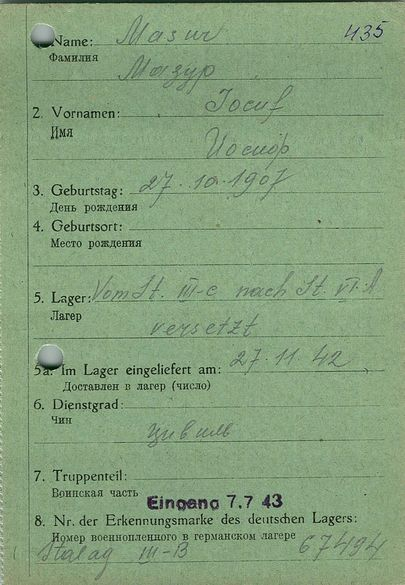 435
1. Name: Masur
Фамилия
Мазур
2. Vornamen: Iосuf
Имя
Иосиф
3. Geburtstag: 27.10.1907
День рождения
4. Geburtsort:
Место рождения
5. Lager: Vom St. III-c nach St. VI.A
Лагер
versetzt
5a. Im Lager eingeliefert am: 27.11.42
Доставлен в лагер (число)
6. Dienstgrad:
Чин
цивиль
7. Truppenteil:
Воинская часть Eingang 7.7 43
8. Nr. der Erkennungsmarke des deutschen Lagers:
Номер военнопленного в германском лагере 67494
Stalag III-B